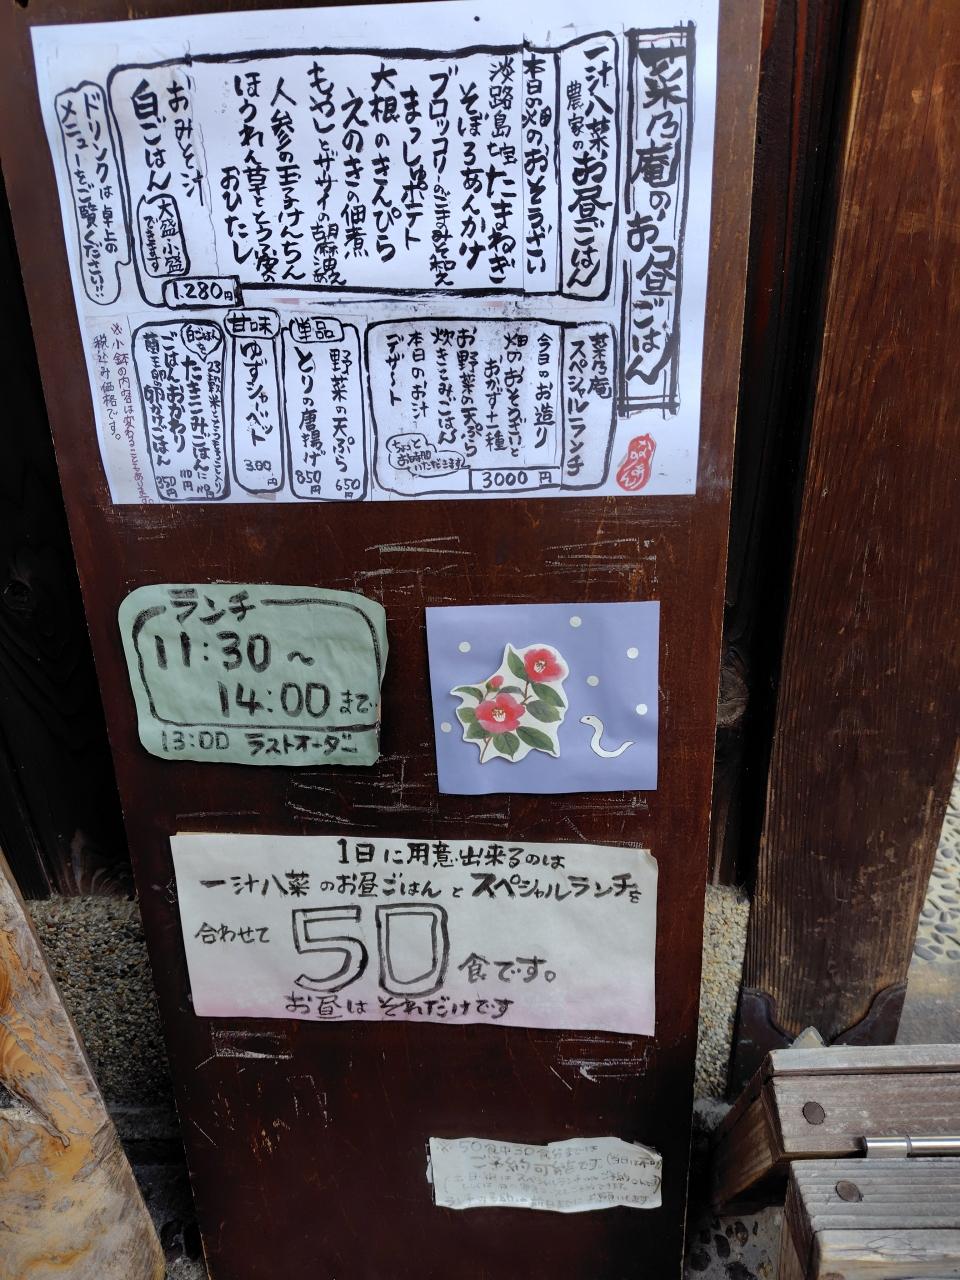 菜乃庵のお昼ごはん
一汁八菜お昼ごはん
農家の
本日の畑のおそうざい
淡路島宝たまねぎ
そぼろあんかけ
ブロッコリーのごまみそ和え
まっしゅポテト
大根のきんぴら
えのきの佃煮
もやしとザーサイの胡麻
人参の玉子けんちん
ほうれん草と
おひたし
おみそ汁
白ごはん
大盛小盛
できます
1.280円
ドリンクは卓上の
メニューをご覧ください!!
菜乃庵
スペシャルランチ
今日のお造り
畑のおそうざいと
おかず十一種
お野菜の天ぷら
炊きこみごはん
本日のお汁
デザート
ちょっと
お時間
いただきます
3000円
単品
野菜の天ぷら
650円
とりの唐揚げ
850円
甘味
ゆずシャーベット
300円
白ごはん
たきこみごはんに
110円
ごはんおかわり
110円
卵かけごはん
350円
※小鉢の内容は変わることもあります。
税込み価格です。
ランチ
11:30～
14:00まで
13:00 ラストオーダー
1日に用意出来るのは
一汁八菜のお昼ごはんとスペシャルランチを
合わせて 50食です。
お昼はそれだけです
※50食中30食分までは
ご予約可能です